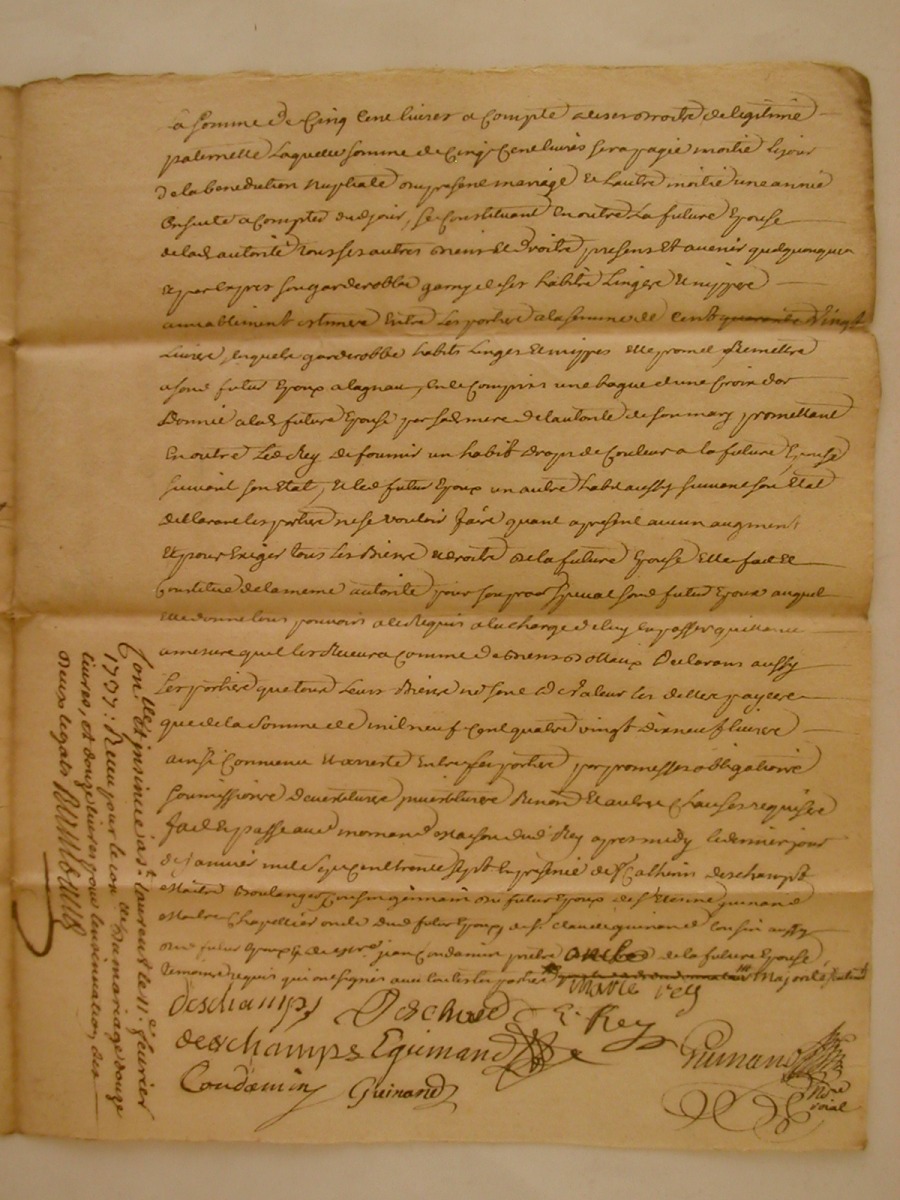 la somme de Cinq Cent livres a Compte de ses droits de legitime
paternelle Laquelle somme de Cinq Cent livres sera payée moitié le jour
de la benediction Nuptiale du present mariage Et Lautre moitié une année
Ensuite a Compter dud jour, se Constituant En outre La future Epouse
de lad autorité tous ses autres Biens Et Droits presents Et avenir quelquonques
Et par Exprès son garderobbe garny de ses habits Linges Et nippes
amiablement Estimés Entre Les parties a la somme de Cent quarante Vingt
Livres, lesquels garderobbe habits Linges Et nippes Elle promet Remettre
a sond futur Epoux a Lagnieu, En ce Compris une bague et une Croix dor
Donnée a lad future Epouse par sad mere de Lautorité de son mary promettant
En outre Led Rey de fournir un habit Drap de Couleur a la future Epouse
suivant son Etat, Et led futur Epoux un autre habit aussy suivant son Etat
declarant les parties ne se vouloir faire quant apresent aucun augment
Et pour Exiger tous Les Biens Et droits de la future Epouse Elle fait Et
Constitue de la meme autorité pour son procr special sond futur Epoux auquel
Elle donne tous pouvoirs a ce Requis a la charge de luy En passer quittance
a mesure quil les Recevra Comme de Biens dottaux Declarans aussy
Les parties que tous Leurs Biens ne sont de Valeur les dettes payées
que de la somme de mil neuf Cent quatre vingt Dix neuf livres
ainsi Convenu Et arresté Entre les parties par promesses obligations
soumissions Renon Et autres Clauses requises
fait Et passé aud mornand Maison dud Rey apres midy le dernier jour
de janvier mil sept cent trente sept En presence de sr Catherin deschamps
Maitre Boulanger Cousin germain du futur Epoux de sr Etienne guinand
Maitre Chapellier oncle dud futur Epoux de sr claude guinand Cousin aussy
dud futur Epoux Et de messre jean Condamin pretre oncle de la future Epouse
Temoins requis qui ont signés avec toutes les parties
marie rey
deschamps Deschamps E. Rey
deschamps E guinand
Guinand Nore roial
Condamin Guinand
Conllé Et insinué a st laurent le 11e fevrier
1737: Reçu pour le con lle du mariage douze
livres, et douze livres pour linsinuation, des
deux legats